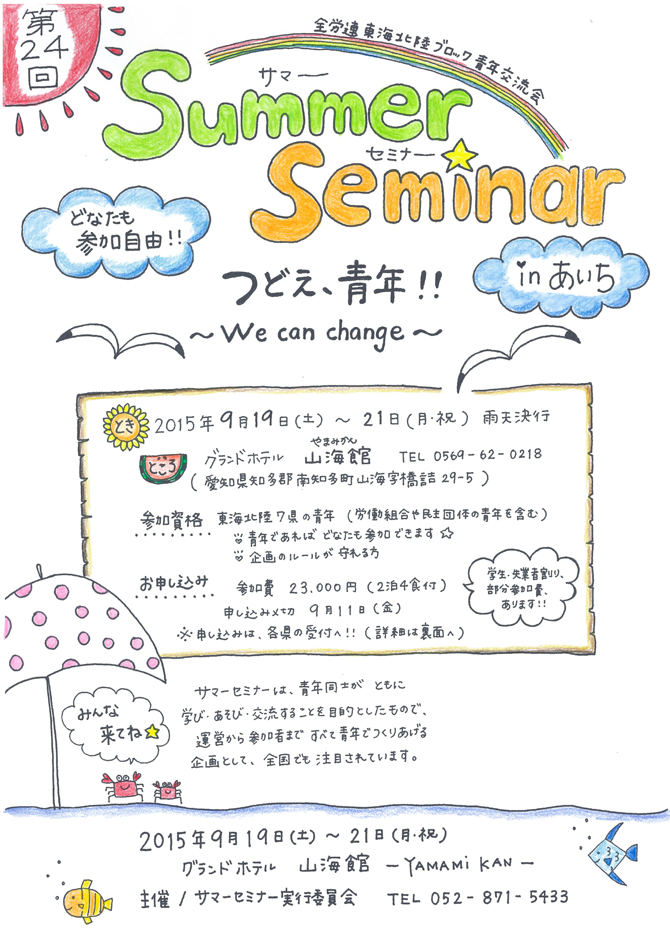 第
24
回
全労連東海北陸ブロック青年交流会
サマー
Summer
セミナー
Seminar
どなたも
参加自由!!
つどえ、青年!!
in あいち
～We can change～
とき 2015年9月19日(土) ～ 21日(月・祝) 雨天決行
やまみかん
ところ グランドホテル 山海館 TEL 0569-62-0218
(愛知県知多郡南知多町山海字橋詰29-5)
参加資格 東海北陸7県の青年 (労働組合や民主団体の青年を含む)
青年であれば どなたも参加できます☆
企画のルールが守れる方
お申し込み 参加費 23.000円 (2泊4食付)
申し込み〆切 9月11日(金)
※申し込みは、各県の受付へ!! (詳細は裏面へ)
学生・失業者割り、
部分参加費、
あります!!
サマーセミナーは、青年同士が ともに
学び・あそび・交流することを目的としたもので、
運営から参加者まで すべて青年でつくりあげる
企画として、全国でも注目されています。
みんな
来てね★
2015年9月19日(土) ～ 21日(月・祝)
グランドホテル 山海館 ーYAMAMI KANー
主催 / サマーセミナー実行委員会 TEL 052-871-5433